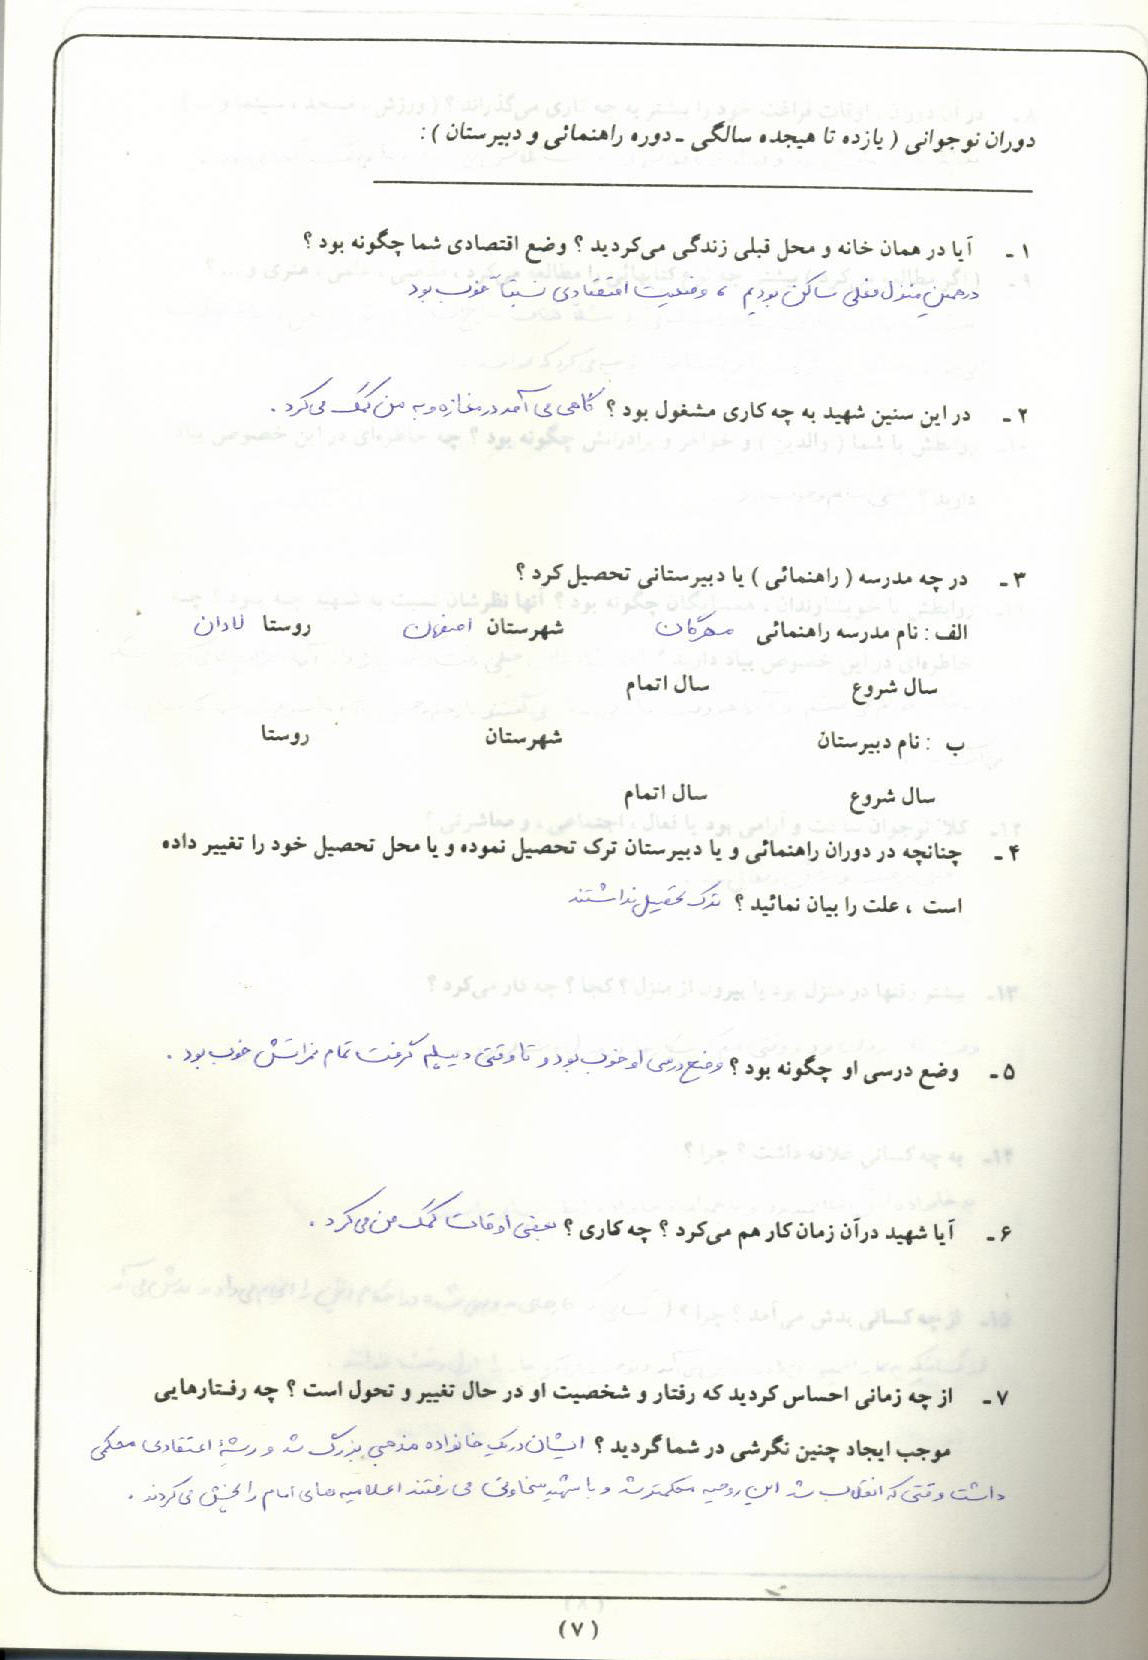 دوران نوجوانی ( یازده تا هیجده سالگی ـ دوره راهنمائی و دبیرستان ) :
۱ ـ آیا در همان خانه و محل قبلی زندگی می‌کردید ؟ وضع اقتصادی شما چگونه بود ؟
درهمین منزل فعلی ساکن بودیم ، وضعیت اقتصادی نسبتاً خوب بود
۲ ـ در این سنین شهید به چه کاری مشغول بود ؟ گاهی می آمد در مغازه و به من کمک می‌کرد .
۳ ـ در چه مدرسه ( راهنمائی ) یا دبیرستانی تحصیل کرد ؟
الف : نام مدرسه راهنمائی مهرگان شهرستان اصفهان روستا لادان
سال شروع سال اتمام
ب : نام دبیرستان شهرستان روستا
سال شروع سال اتمام
۴ ـ چنانچه در دوران راهنمائی و یا دبیرستان ترک تحصیل نموده و یا محل تحصیل خود را تغییر داده
است ، علت را بیان نمائید ؟ ترک تحصیل نداشتند
۵ ـ وضع درسی او چگونه بود ؟ وضع درسی او خوب بود و تا وقتی دیپلم گرفت تمام نمراتش خوب بود .
۶ ـ آیا شهید درآن زمان کار هم می‌کرد ؟ چه کاری ؟ بعضی اوقات کمک من می‌کرد .
۷ ـ از چه زمانی احساس کردید که رفتار و شخصیت او در حال تغییر و تحول است ؟ چه رفتارهایی
موجب ایجاد چنین نگرشی در شما گردید ؟ ایشان در یک خانواده مذهبی بزرگ شد و ریشهٔ اعتقادی محکمی
داشت وقتی که انقلاب شد این روحیه محکمتر شد و با شهید سخاوتی می رفتند اعلامیه های امام را پخش می کردند .
(۷)